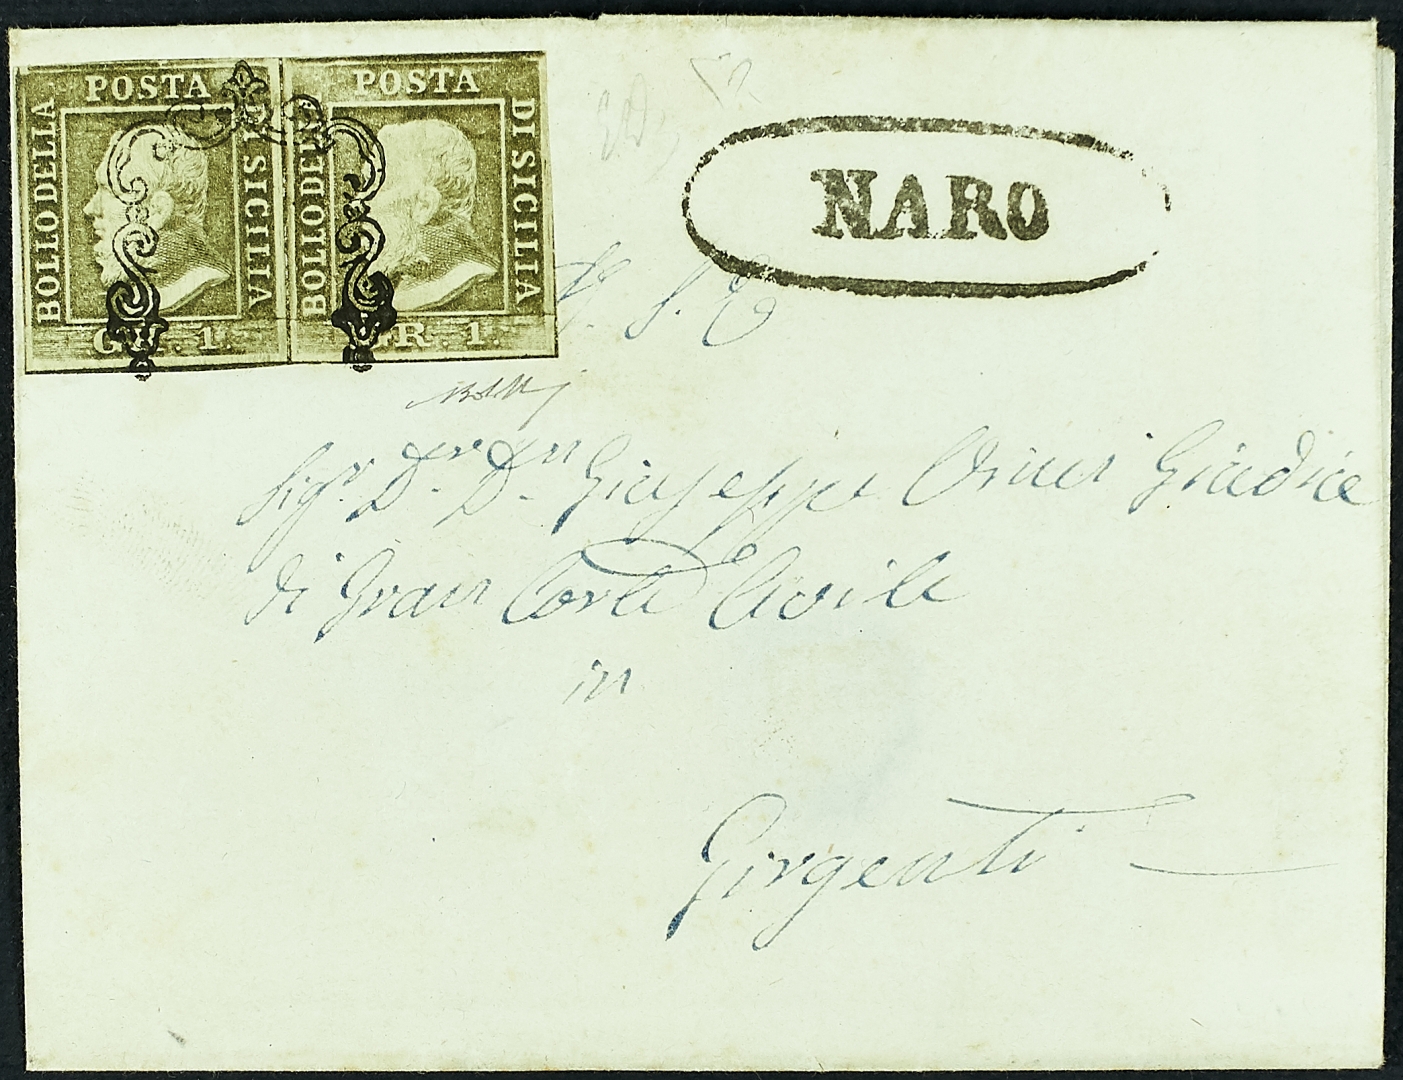 POSTA POSTA
BOLLO DELLA DI SICILIA BOLLO DELLA DI SICILIA
GR. 1. GR. 1.
NARO
A. S. E.
Sigr. Dr. Dn. Giuseppe Giudice
di Gran Corte Civile
in
Girgenti